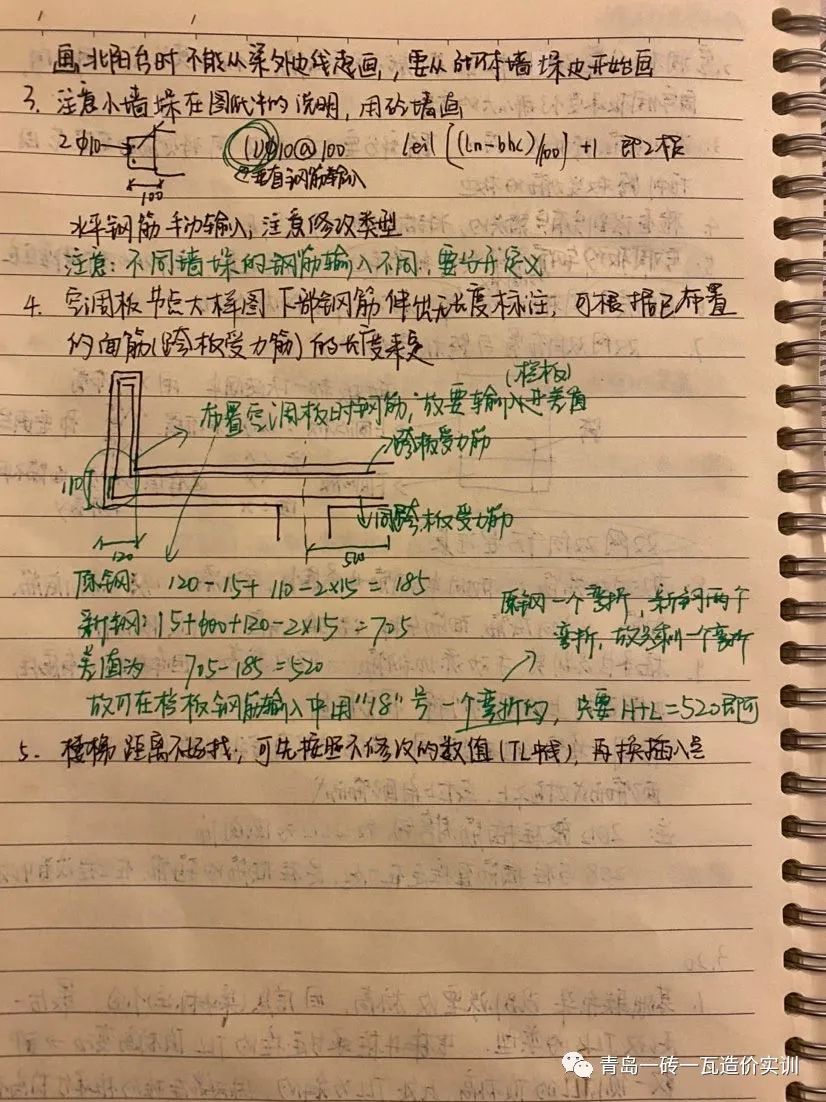 画北阳台时不能从梁外边线起画,要从砌体墙垛边开始画
3. 注意小墙垛在图纸中的说明,用砼墙画
2φ10 (1)φ10@100 Ceil[(Ln-bhc)/100]+1 即2根
100 垂直钢筋输入
水平钢筋手动输入,注意修改类型
注意:不同墙垛的钢筋输入不同,要分开定义
4. 空调板节点大样图下部钢筋伸出无长度标注,可根据已布置
的面筋(跨板受力筋)的长度来定
(栏板)
布置空调板时钢筋,故要输入进差值
跨板受力筋
110
同跨板受力筋
120 500
原钢: 120-15+110-2×15=185
原钢一个弯折,新钢两个
新钢:15+600+120-2×15=705
弯折,故差一个弯折
差值为 705-185=520
故可在栏板钢筋输入中用"18"号一个弯折的,只要H+L=520即可
5. 楼梯距离不好找,可先按照不修改的数值(TL中线),再换插入点
青岛一砖一瓦造价实训